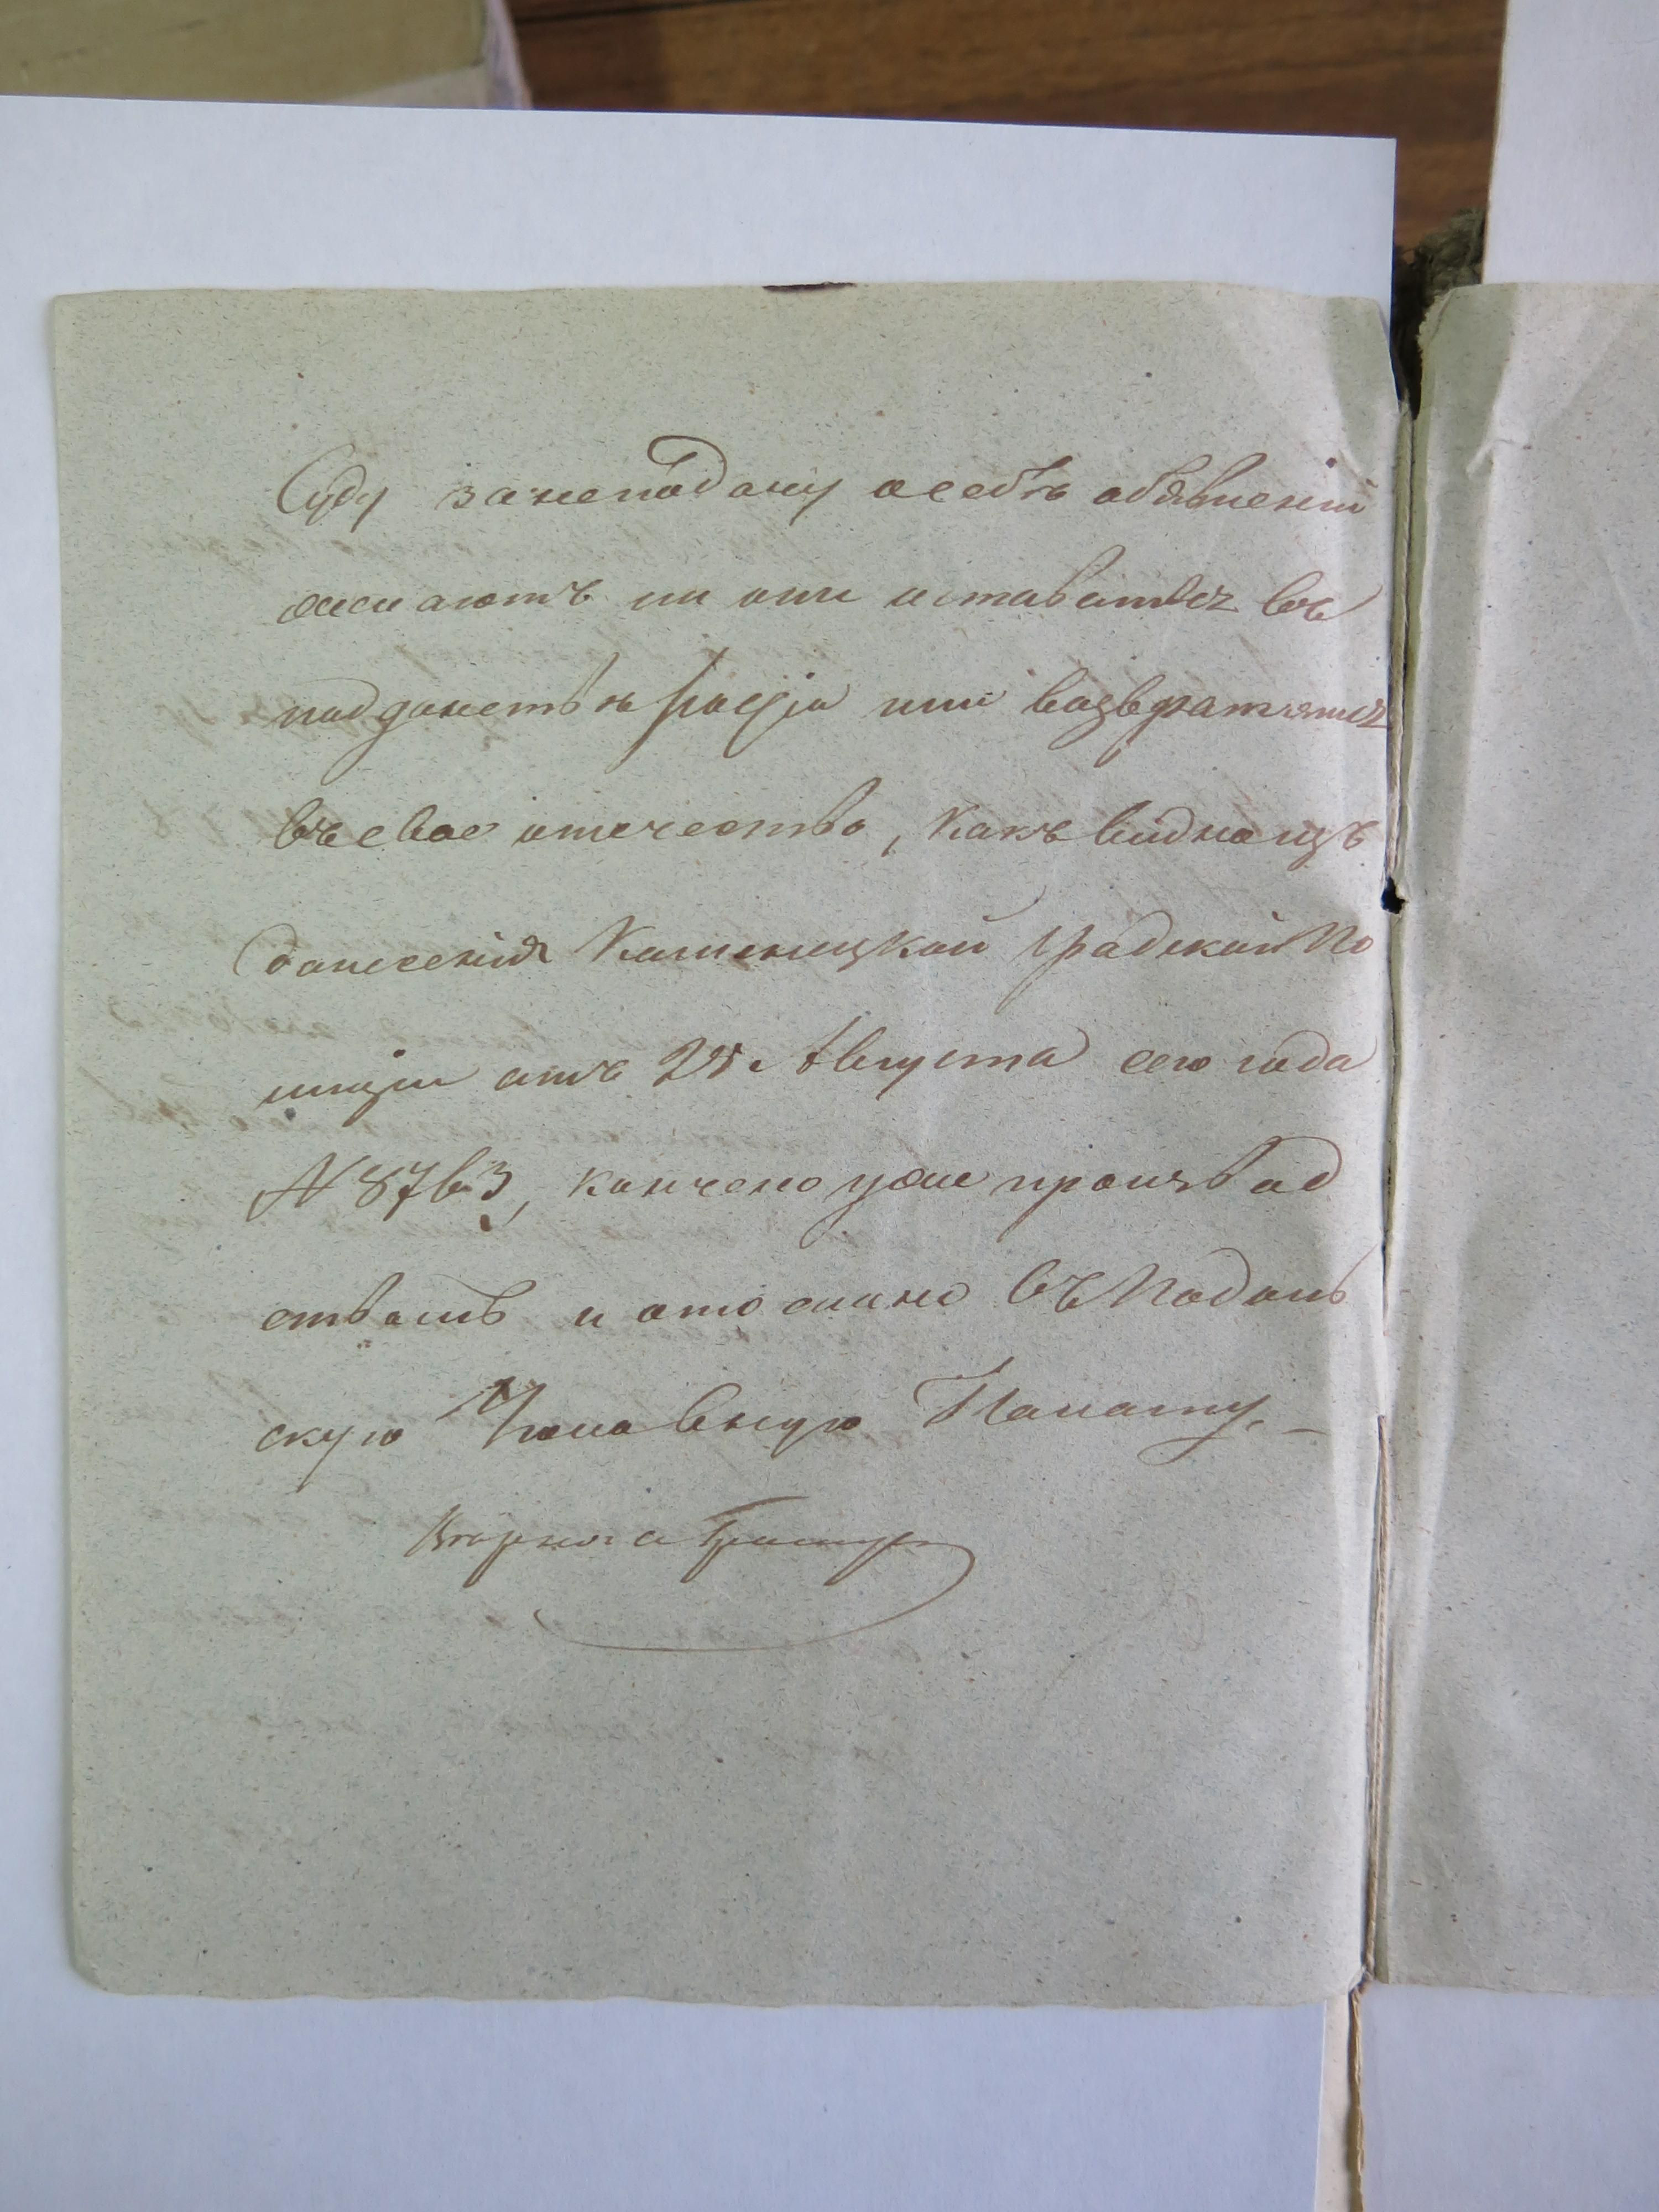 Суду за неподачу о себѣ объявленій
желаютъ ли они оставатьса въ
подданствѣ Росціи или возвратятса
въ свое отечество, какъ видно изъ
донесенія Каменецкой Градской По
лиціи отъ 25 Августа сего года
N 8763, кончено уже производ
ствомъ и отослано въ Подоль
скую Уголовную Палату. –